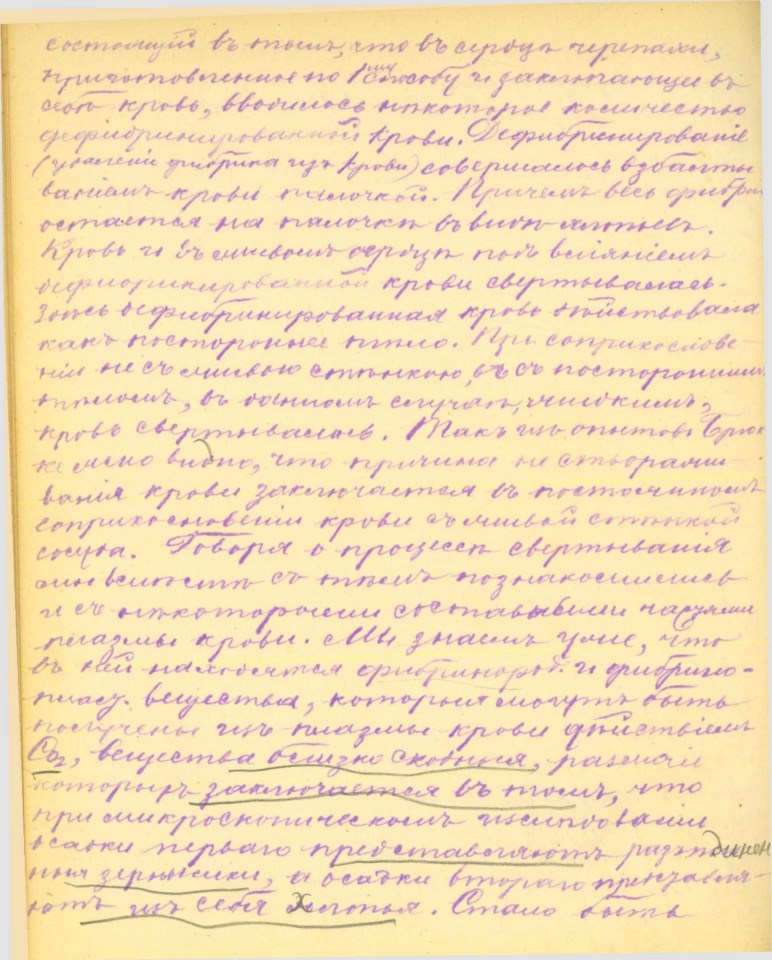 состоящій въ томъ, что въ сердце черепахи,
приготовленное по 1му способу и заключающее въ
себѣ кровь, вводилось нѣкоторое количество
дефибринированной крови. Дефибринированіе
(удаленіе фибрина изъ крови) совершалось взбалты
ваніемъ крови палочкой. Причемъ весь фибри
остается на палочкѣ въ видѣ хлопьевъ.
Кровь и въ живомъ сердцѣ подъ вліяніемъ
дефибринированной крови свертывалась.
Здѣсь дефибринированная кровь дѣйствовала
какъ постороннее тѣло. При соприкоснове-
ніи не съ живою стѣнкою, а съ постороннимъ
тѣломъ, въ данномъ случаѣ, жидкимъ,
кровь свертывалась. Такъ изъ опытовъ Брюк
ке ясно видно, что причина не створажи-
ванія крови заключается въ постоянномъ
соприкосновеніи крови съ живой стѣнкой
сосуда. Говоря о процессѣ свертыванія
мы вмѣстѣ съ тѣмъ познакомились
и съ нѣкоторыми составными частями
плазмы крови. Мы знаемъ уже, что
въ ней находятся фибриноген. и фибрино-
пласт. вещества, которыя могутъ быть
получены изъ плазмы крови дѣйствіемъ
CO2, вещества близко сходныя, различіе
которыхъ заключается въ томъ, что
при микроскопическомъ изслѣдованіи
осадки перваго представляютъ разъединен
ныя зернышки, а осадки втораго представля-
ютъ изъ себя хлопья. Стало быть